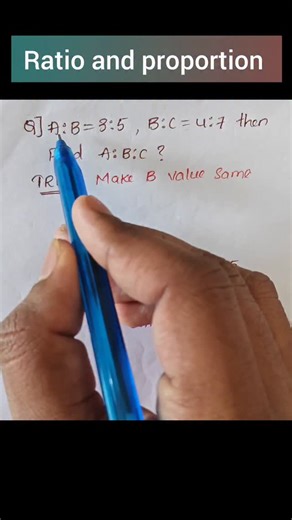 Ratio and proportion
Q] A:B=3:5, B:C=4:7 then
A:B:C?
Make B value same